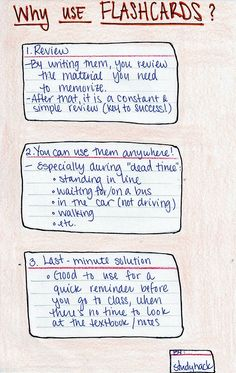 Why USE FLASHCARDS?
1. Review
- By writing them, you review
the material you need
to memorize.
- After that, it is a constant &
simple review (key to success!)
2. You can use them anywhere!
- Especially during "dead time":
• standing in line
• waiting for/on a bus
• in the car (not driving)
• walking
• etc.
3. Last-minute solution
• Good to use for a
quick reminder before
you go to class, when
there's no time to look
at the textbook/notes
BY:
studyhack